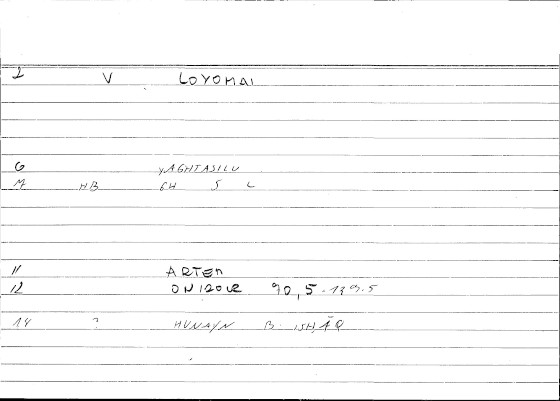 2 V LOYOMAI
6 YAGHTASILU
M HB GH S L
11 ARTEM
12 90,5-139.5
14 ? HUNAYN B. ISHĀQ